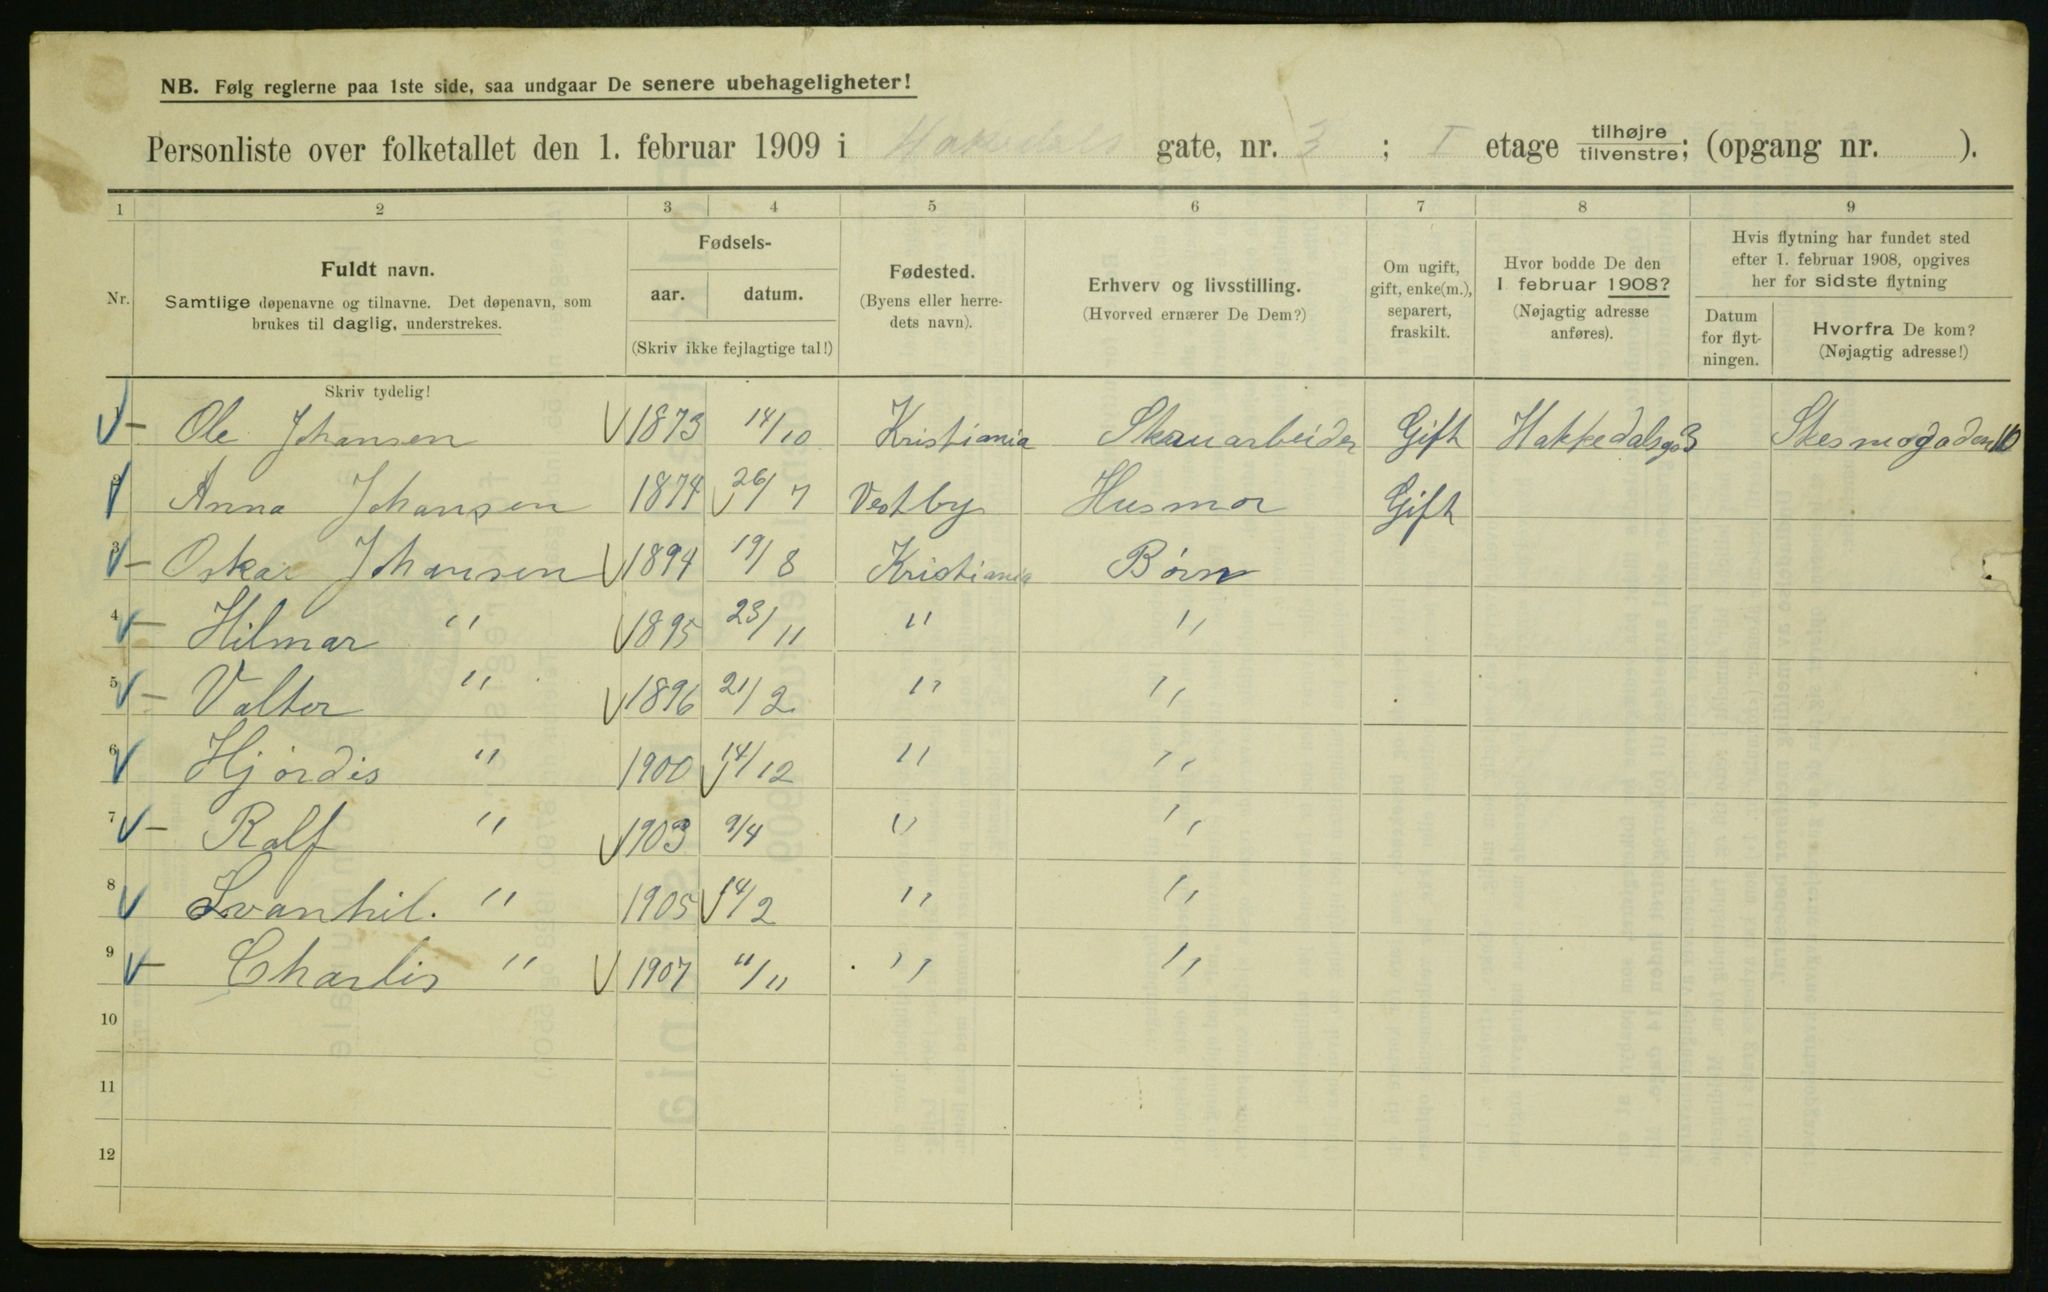 NB. Følg reglerne paa 1ste side, saa undgaar De senere ubehageligheter!
Personliste over folketallet den 1. februar 1909 i Hakedals gate, nr. 3 ; I etage tilhøjre tilvenstre; (opgang nr. ).
1 2 3 4 5 6 7 8 9
Nr.
Fuldt navn.
Samtlige døpenavne og tilnavne. Det døpenavn, som
brukes til daglig, understrekes.
Fødsels-
aar. datum.
(Skriv ikke fejlagtige tal!)
Fødested.
(Byens eller herre-
dets navn).
Erhverv og livsstilling.
(Hvorved ernærer De Dem?)
Om ugift,
gift, enke(m.),
separert,
fraskilt.
Hvor bodde De den
1. februar 1908?
(Nøjagtig adresse
anføres).
Hvis flytning har fundet sted
efter 1. februar 1908, opgives
her for sidste flytning
Datum
for flyt-
ningen.
Hvorfra De kom?
(Nøjagtig adresse!)
Skriv tydelig!
1 Ole Johansen 1873 14/10 Kristiania Skruarbeider Gift Hakkedalsg 3 Skesmogaden 10
2 Anna Johansen 1874 26/7 Vestby Husmor Gift
3 Oskar Johansen 1894 19/8 Kristiania Børn
4 Hilmar " 1895 23/11 " "
5 Valter " 1896 21/2 " "
6 Hjørdis " 1900 14/12 " "
7 Ralf " 1903 9/4 " "
8 Svanhil. " 1905 14/2 " "
9 Charlis " 1907 11/11 " "
10
11
12